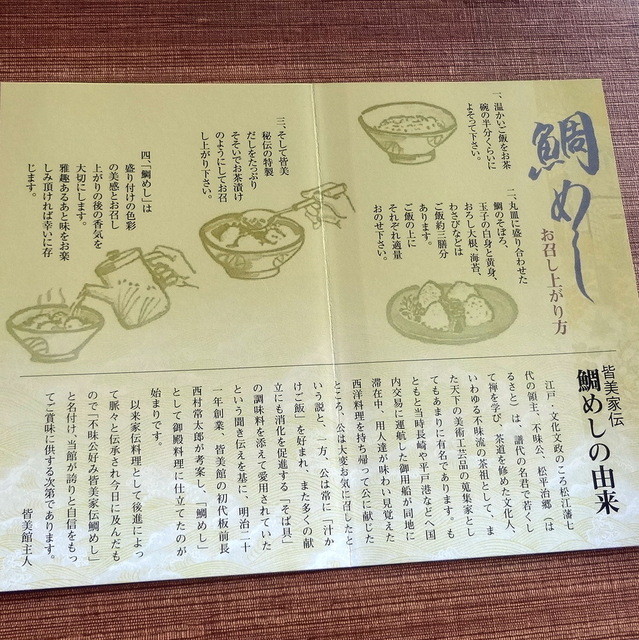 鯛めし
お召し上がり方
一、温かいご飯をお茶
碗の半分くらいに
よそって下さい。
二、丸皿に盛り合わせた
鯛のそぼろ、
玉子の白身と黄身、
おろし大根、海苔、
わさびなどは
ご飯約三膳分
あります。
ご飯の上に
それぞれ適量
おのせ下さい。
三、そして皆美
秘伝の特製
だしをたっぷり
そそいでお茶漬け
のようにしてお召
し上がり下さい。
四、「鯛めし」は
盛り付けの色彩
の美感とお召し
上がりの後の香気を
大切にします。
雅趣あるあと味をお楽
しみ頂ければ幸いに存
じます。
皆美家伝
鯛めしの由来
江戸・文化文政のころ松江藩七
代の領主、「不昧公、松平治郷（は
るさと）は、譜代の名君で若くし
て禅を学び、茶道を修めた文化人、
いわゆる不昧流の茶祖として、ま
た天下の美術工芸品の蒐集家とし
てもあまりに有名であります。も
ともと当時長崎や平戸港などへ国
内交易に運航した御用船が同地に
滞在中、用人達が味わい見覚えた
西洋料理を持ち帰って公に献じた
ところ、公は大変お気に召したと
いう説と、一方、公は常に「汁か
けご飯」を好まれ、また多くの献
立にも消化を促進する「そば具」
の調味料を添えて愛用されていた
という聞き伝えを基に、明治二十
一年創業、皆美館の初代板前長
西村常太郎が考案し、「鯛めし」
として御殿料理に仕立てたのが
始まりです。
以来家伝料理として後進によっ
て脈々と伝承され今日に及んだも
ので「不昧公好み皆美家伝鯛めし」
と名付け、当館が誇りと自信をもっ
てご賞味に供する次第であります。
皆美館主人